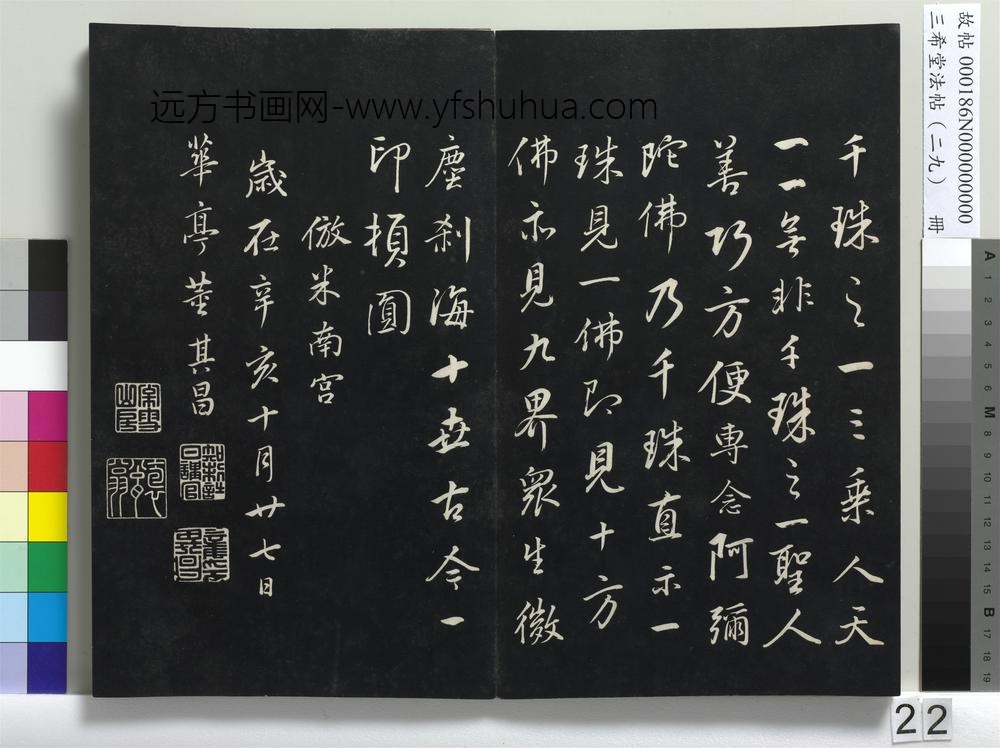 远方书画网-www.yfshuhua.com
故帖000186N000000000
三希堂法帖（二九） 冊
千珠之一三乗人天
一一無非千珠之一聖人
善巧方便專念阿彌
陀佛乃千珠直示一
珠見一佛即見十方
佛亦見九界眾生微
塵刹海十世古今一
印頓圓
倣米南宮
歲在辛亥十月廿七日
華亭董其昌
A 1 2 3 4 5 6 M 8 9 10 11 12 13 14 15 B 17 18 19
22